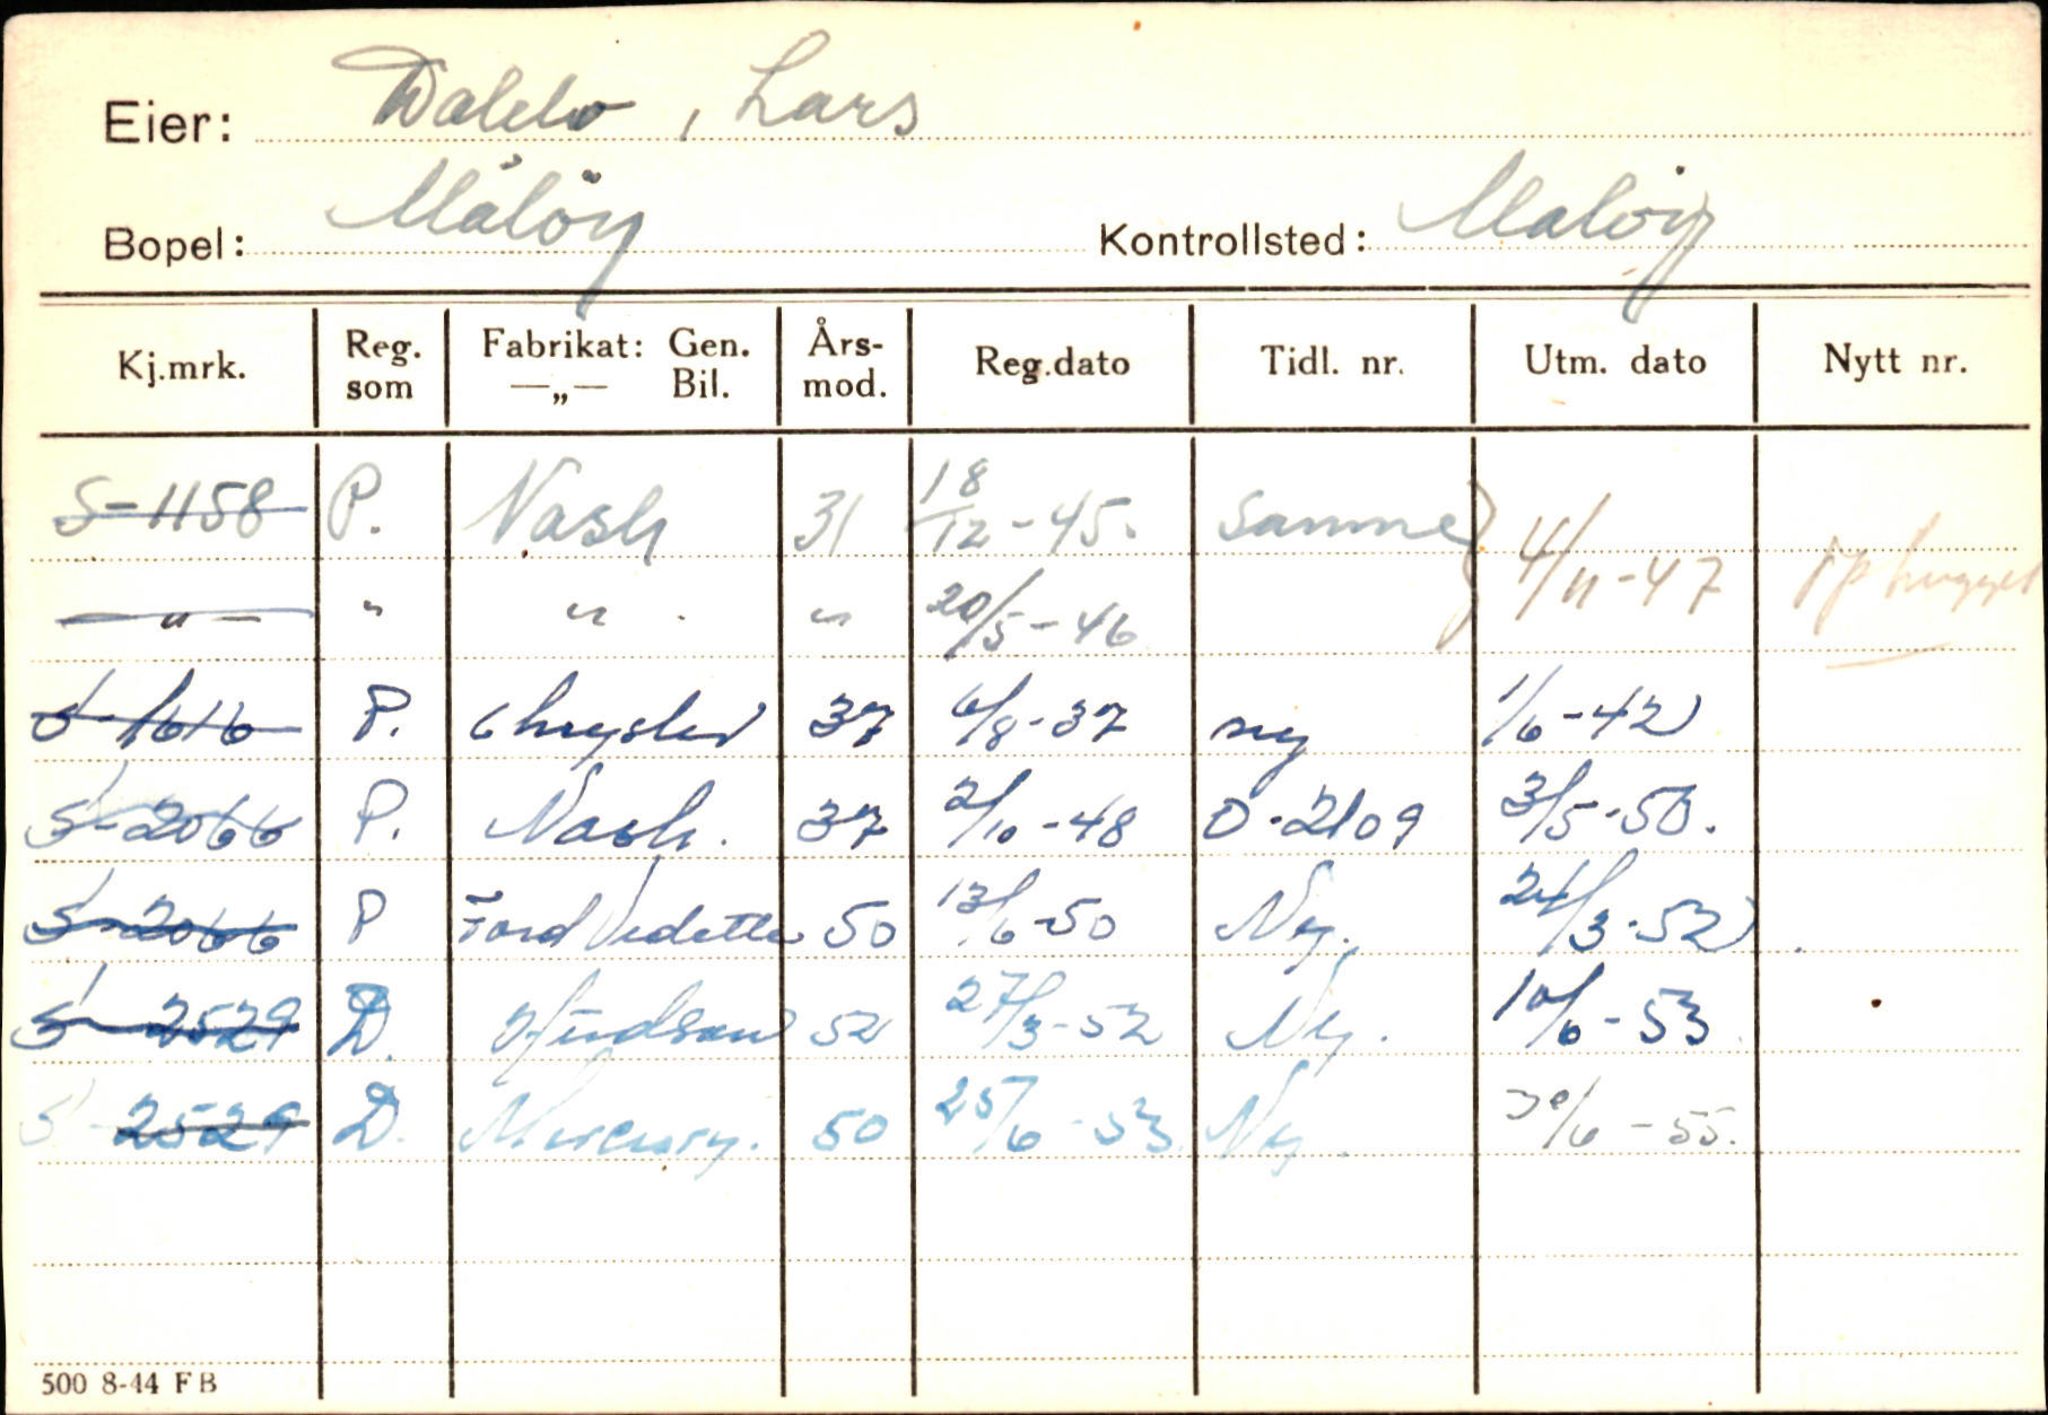 Eier: Dalebø, Lars
Bopel: Måløy Kontrollsted: Måløy
Kj.mrk. Reg. som Fabrikat: Gen. —„— Bil. Års-mod. Reg.dato Tidl. nr. Utm. dato Nytt nr.
S-1158 P. Nash 31 18/12-45. Samme 4/11-47 opphugget
—"— " " " 20/5-46
S-1616 P. Chrysler 37 6/8-37 ny 1/6-42
S-2066 P. Nash. 37 2/10-48 D-2109 3/5-50.
S-2066 P Ford Vedette 50 13/6-50 Ny. 24/3-52
S-2529 D. Hudson 52 27/3-52 Ny. 10/6-53
S-2529 D. Mercury. 50 25/6-53 Ny. 30/6-55.
500 8-44 FB